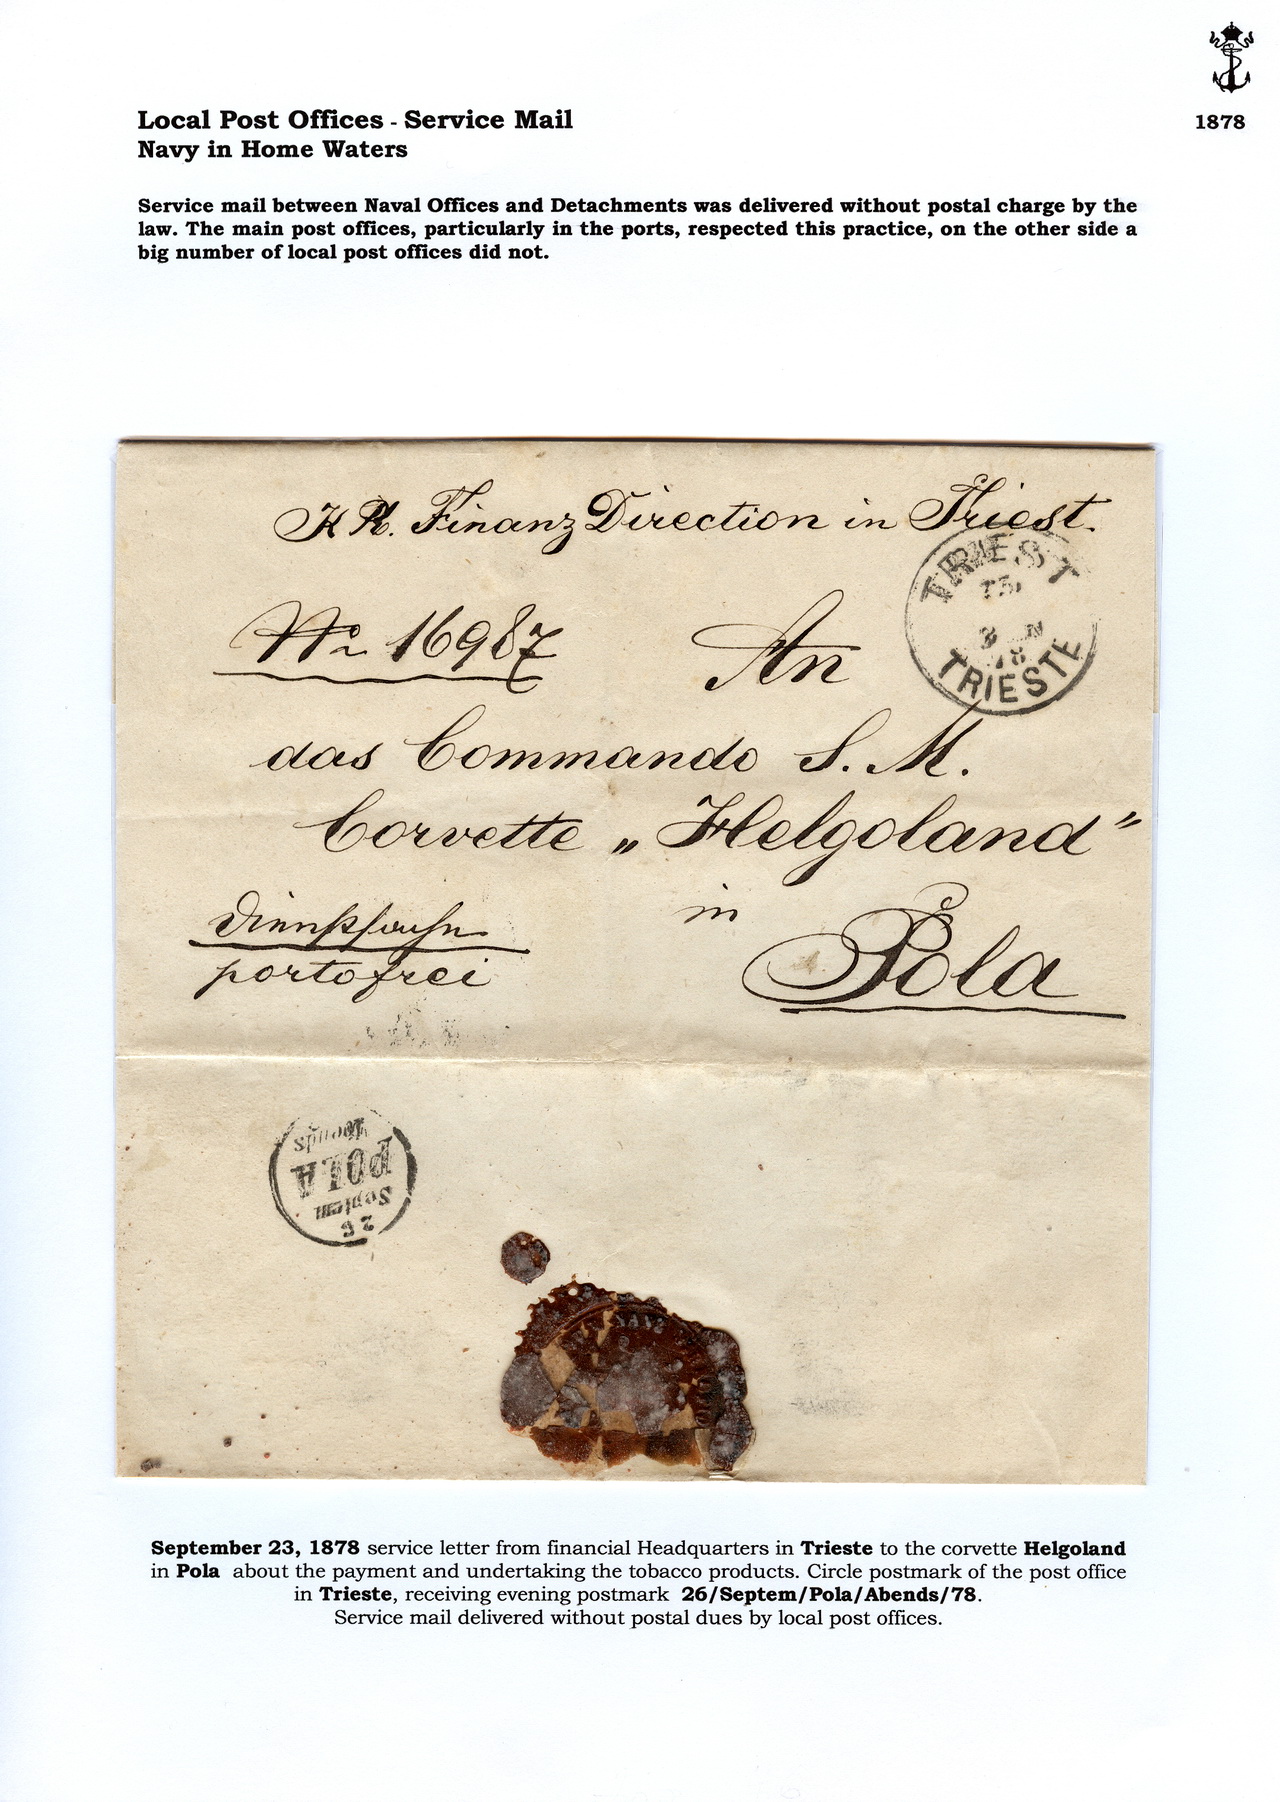 1878
Local Post Offices - Service Mail
Navy in Home Waters
Service mail between Naval Offices and Detachments was delivered without postal charge by the
law. The main post offices, particularly in the ports, respected this practice, on the other side a
big number of local post offices did not.
K K. Finanz Direction in Triest.
TRIEST
TRIESTE
No 16987
An
das Commando S. M.
Corvette „Helgoland"
in
Dienstsache
portofrei
Pola
26
Septem
POLA
Abends
September 23, 1878 service letter from financial Headquarters in Trieste to the corvette Helgoland
in Pola about the payment and undertaking the tobacco products. Circle postmark of the post office
in Trieste, receiving evening postmark 26/Septem/Pola/Abends/78.
Service mail delivered without postal dues by local post offices.